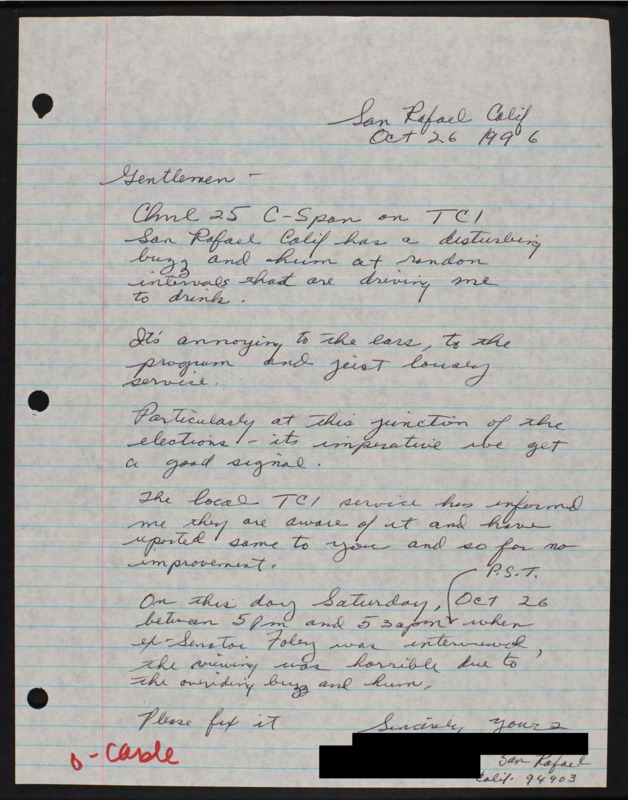 San Rafael Calif
Oct 26 1996
Gentlemen -
Chnl 25 C-Span on TCI
San Rafael Calif has a disturbing
buzz and hum at random
intervals that are driving me
to drink.
It's annoying to the ears, to the
program and jeist lousey
service.
Particularly at this junction of the
elections - its imperative we get
a good signal.
The local TCI service has informed
me they are aware of it and have
reported same to you and so far no
improvement.
P.S.T.
On this day Saturday, Oct 26
between 5pm and 530pm when
ex-Senator Foley was interviewed,
the viewing was horrible due to
the overiding buzz and hum.
Please fix it
Sincerely yours
San Rafael
Calif. 94903
D-Cable